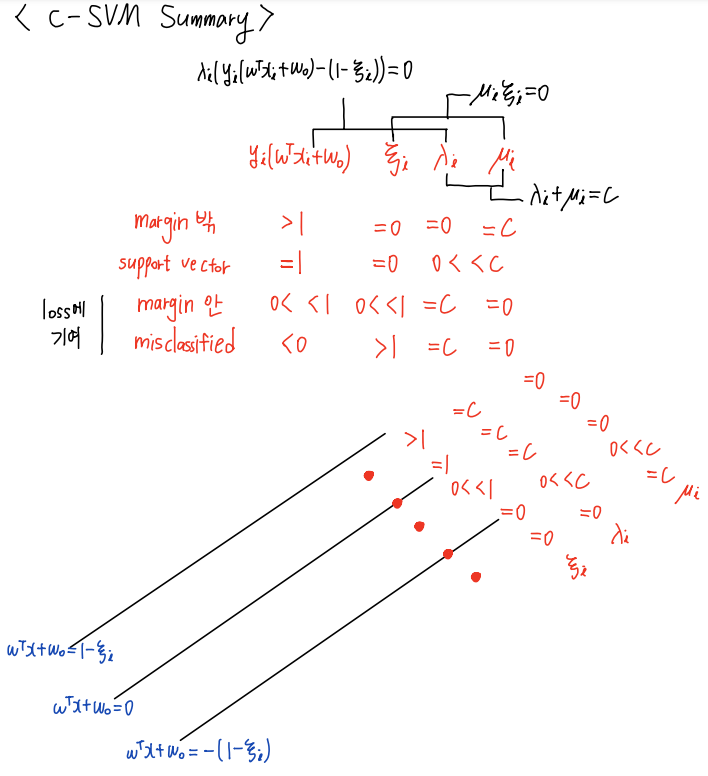 < C-SVM Summary >
λᵢ(yᵢ(ωᵀxᵢ+ω₀)-(1-ξᵢ))=0
μᵢξᵢ=0
yᵢ(ωᵀxᵢ+ω₀) ξᵢ λᵢ μᵢ
λᵢ+μᵢ=C
margin 밖 >1 =0 =0 =C
support vector =1 =0 0< <C
loss에 기여
margin 안 0< <1 0<<1 =C =0
misclassified <0 >1 =C =0
=0
=0
=0
0<<C
=C
μᵢ
=C
=C
=C
0<<C
=0
λᵢ
>1
=1
0<<1
=0
=0
ξᵢ
ωᵀx+ω₀=1-ξᵢ
ωᵀx+ω₀=0
ωᵀx+ω₀=-(1-ξᵢ)